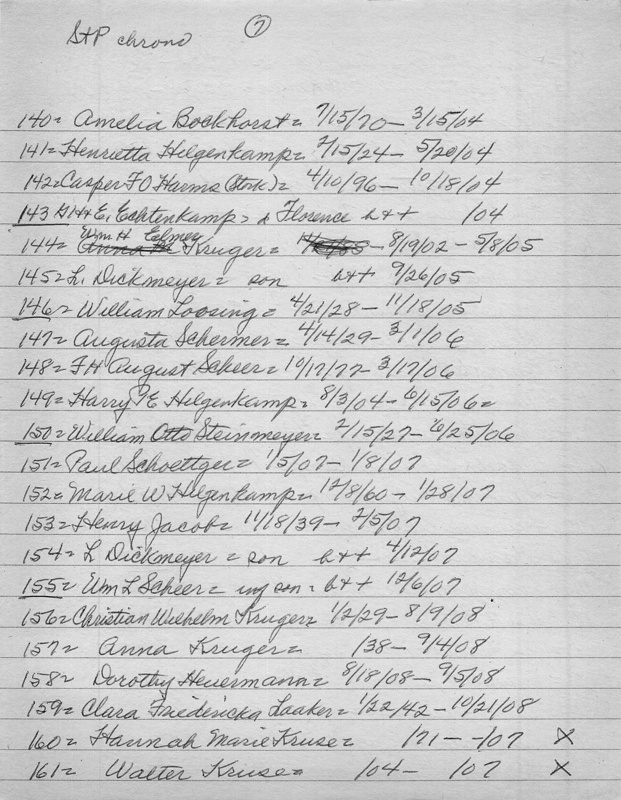 StP chrono ⑦
140= Amelia Bockhorst= 7/15/70 - 3/15/04
141= Henrietta Hilgenkamp= 2/15/24 - 5/20/04
142= Casper F O Harms (Stork)= 4/10/96 - 10/18/04
143 E. Echtenkamp= Florence b++ /04
Wm H Eelmer
144= Kruger= 8/19/02 - 5/8/05
145= L. Dickmeyer = son b++ 9/26/05
146= William Loosing= 4/21/28 - 11/18/05
147= Augusta Schermer= 4/14/29 - 3/1/06
148= FH August Scheer= 10/17/77 - 3/17/06
149= Harry E Hilgenkamp= 8/3/04 - 6/15/06=
150= William Otto Steinmeyer= 2/15/27 - 6/25/06
151= Paul Schoettger= 1/5/07 - 1/8/07
152= Marie W Hilgenkamp= 12/8/60 - 1/28/07
153= Henry Jacob= 11/18/39 - 2/5/07
154= L Dickmeyer = son b++ 4/12/07
155= Wm L Scheer= inf son = b++ 12/6/07
156= Christian Wilhelm Kruger= 1/2/29 - 8/9/08
157= Anna Kruger= /38 - 9/4/08
158= Dorothy Heuermann= 8/18/08 - 9/5/08
159= Clara Friedericka Laaker= 1/22/42 - 10/21/08
160= Hannah Marie Kruse= /71 - -/07 X
161= Walter Kruse= /04 - /07 X